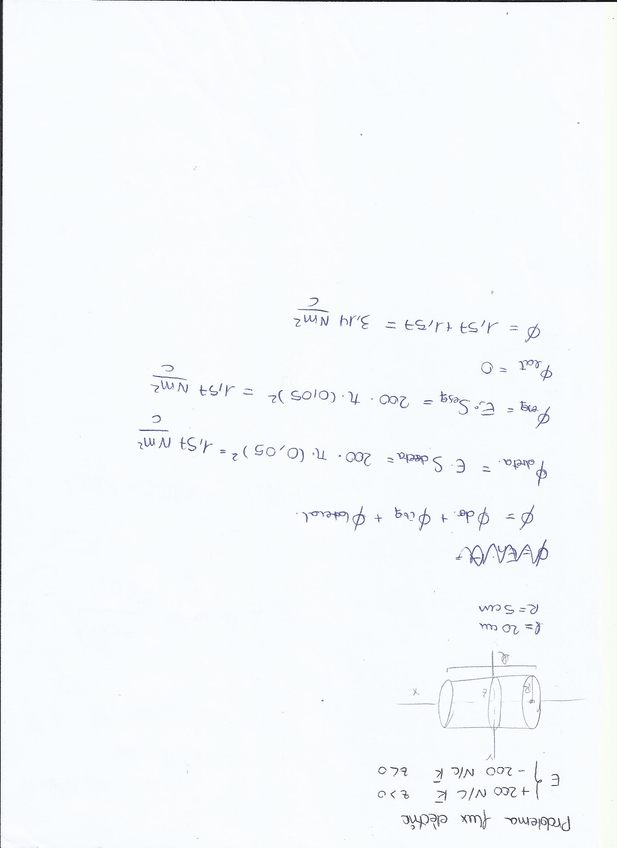 Problema flux elèctric
E { +200 N/C k̄ z>0
- 200 N/C k̄ z<0
Y
R z X
l
l = 20 cm
R = 5 cm
ϕ = ϕ dta. + ϕ esq + ϕ lateral.
ϕ dreta. = E · S dreta = 200 · π · (0,05)² = 1,57 Nm²/C
ϕ esq = E · S esq = 200 · π · (0,05)² = 1,57 Nm²/C
ϕ lat = 0
ϕ = 1,57 + 1,57 = 3,14 Nm²/C